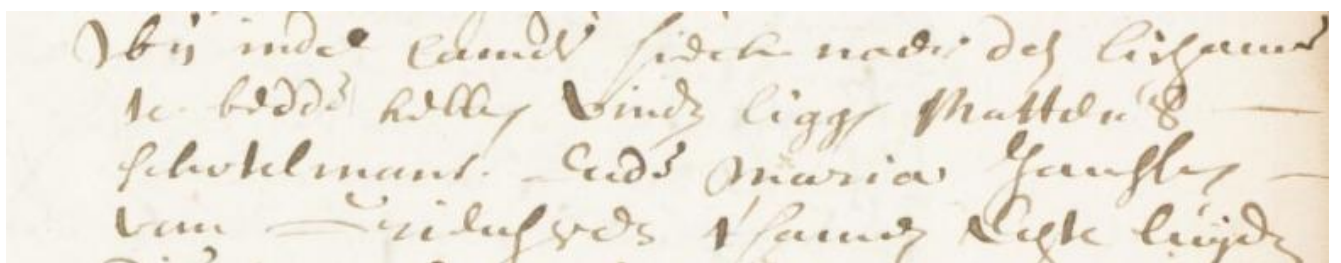 wij inde camer sieck nade des lichaems
te bedde hebben vinden liggen Mattheus
schotelmans. Ende Maria Janssen
van t'samen Echte luijden